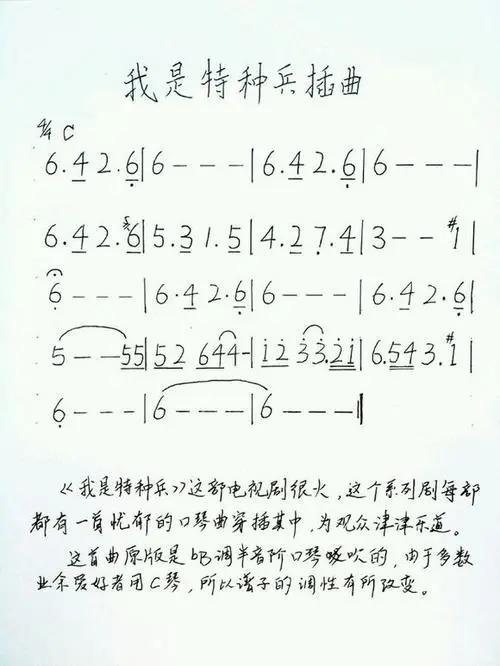 我是特种兵插曲
4/4 C
6.4 2.6|6---|6.4 2.6|6---|
6.4 2.6|5.3 1.5|4.2 7.4|3--#1|
6---|6.4 2.6|6---|6.4 2.6|
5--55|52 644-|12 33.21|6.54 3.#1|
6---|6---|6---‖
《我是特种兵》这部电视剧很火，这个系列剧每部
都有一首忧郁的口琴曲穿插其中，为观众津津乐道。
这首曲原版是bB调半音阶口琴吹的，由于多数
业余爱好者用C琴，所以谱子的调性有所改变。